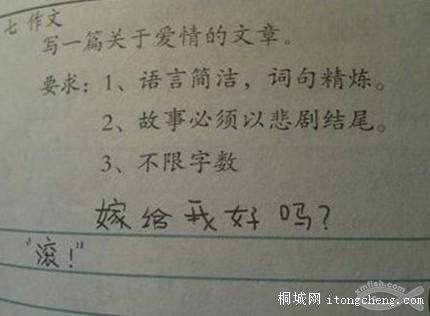 七 作文
写一篇关于爱情的文章。
要求：1、语言简洁，词句精炼。
2、故事必须以悲剧结尾。
3、不限字数
嫁给我好吗？
"滚！"
xmfish.com
桐城网 itongcheng.com